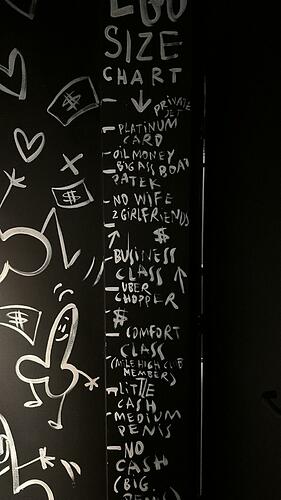 EGO
SIZE
CHART
PRIVATE
JET
PLATINUM
CARD
OIL MONEY
BIG ASS BOAT
PATEK
NO WIFE
2 GIRLFRIENDS
$
BUSINESS
CLASS
UBER
CHOPPER
$
COMFORT
CLASS
(MILE HIGH CLUB
MEMBERS)
LITTLE
CASH
MEDIUM
PENIS
NO
CASH
(BIG
PENIS)
$
$
$